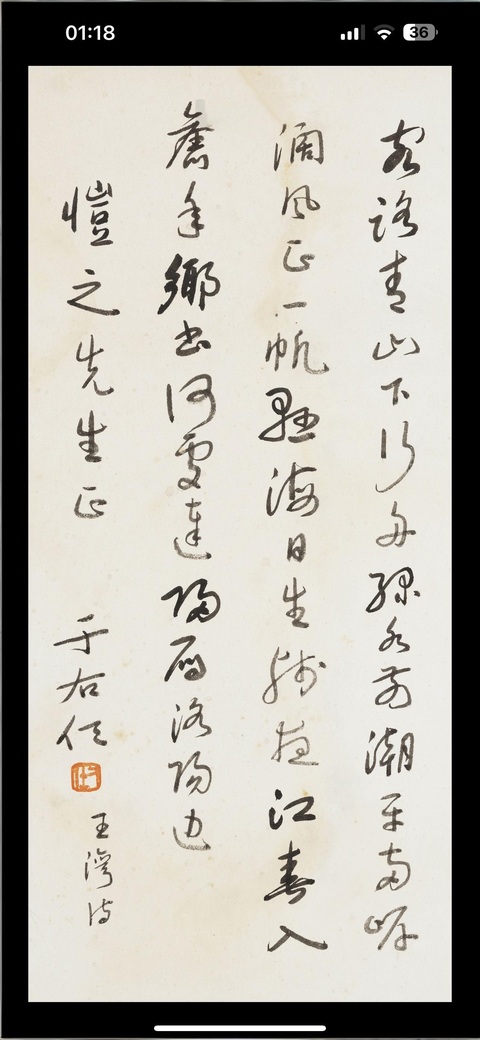 01:18 36
客路青山下行舟綠水前潮平兩岸
闊風正一帆懸海日生殘夜江春入
舊年鄉書何處達歸雁洛陽邊
愷之先生正
于右任
王灣詩